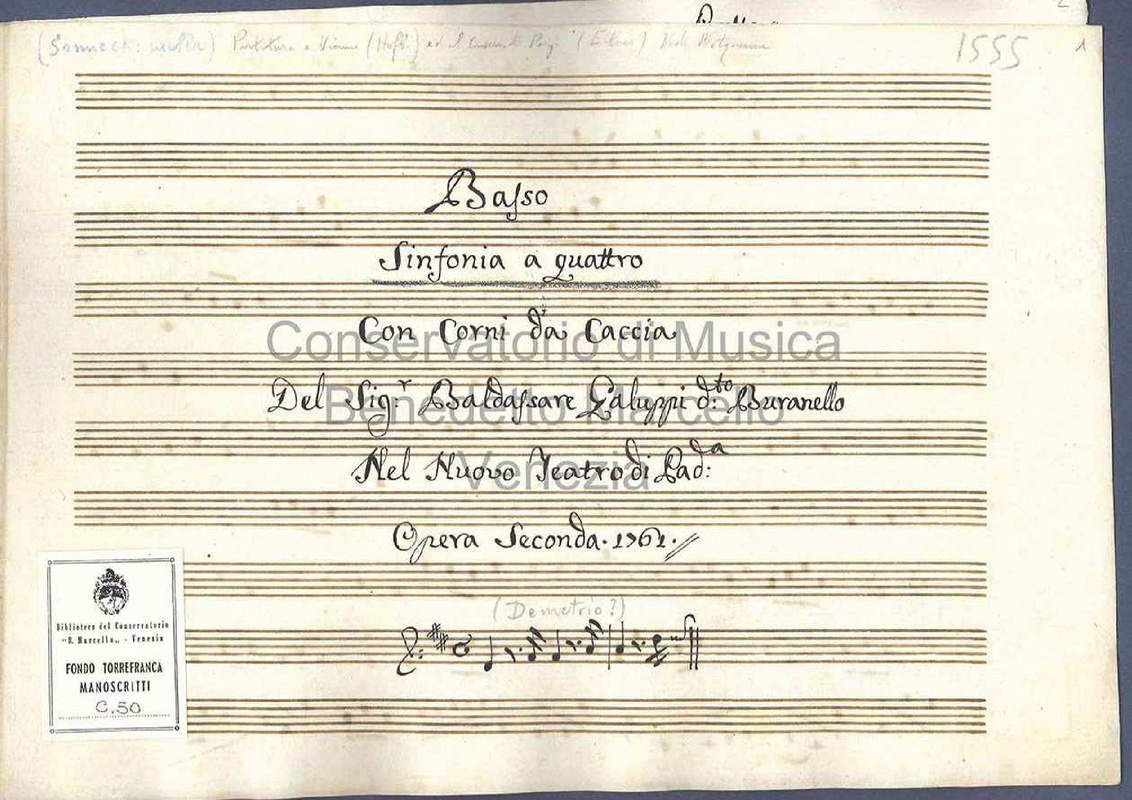 1555
1
2
Basso
Sinfonia a quattro
Con Corni da Caccia
Del Sig:r Baldassare Galuppi d:to Buranello
Nel Nuovo Teatro di Pad:a
Opera Seconda. 1761.
(Demetrio?)
Conservatorio di Musica
Benedetto Marcello
Venezia
Biblioteca del Conservatorio
"B. Marcello" - Venezia
FONDO TORREFRANCA
MANOSCRITTI
C.50